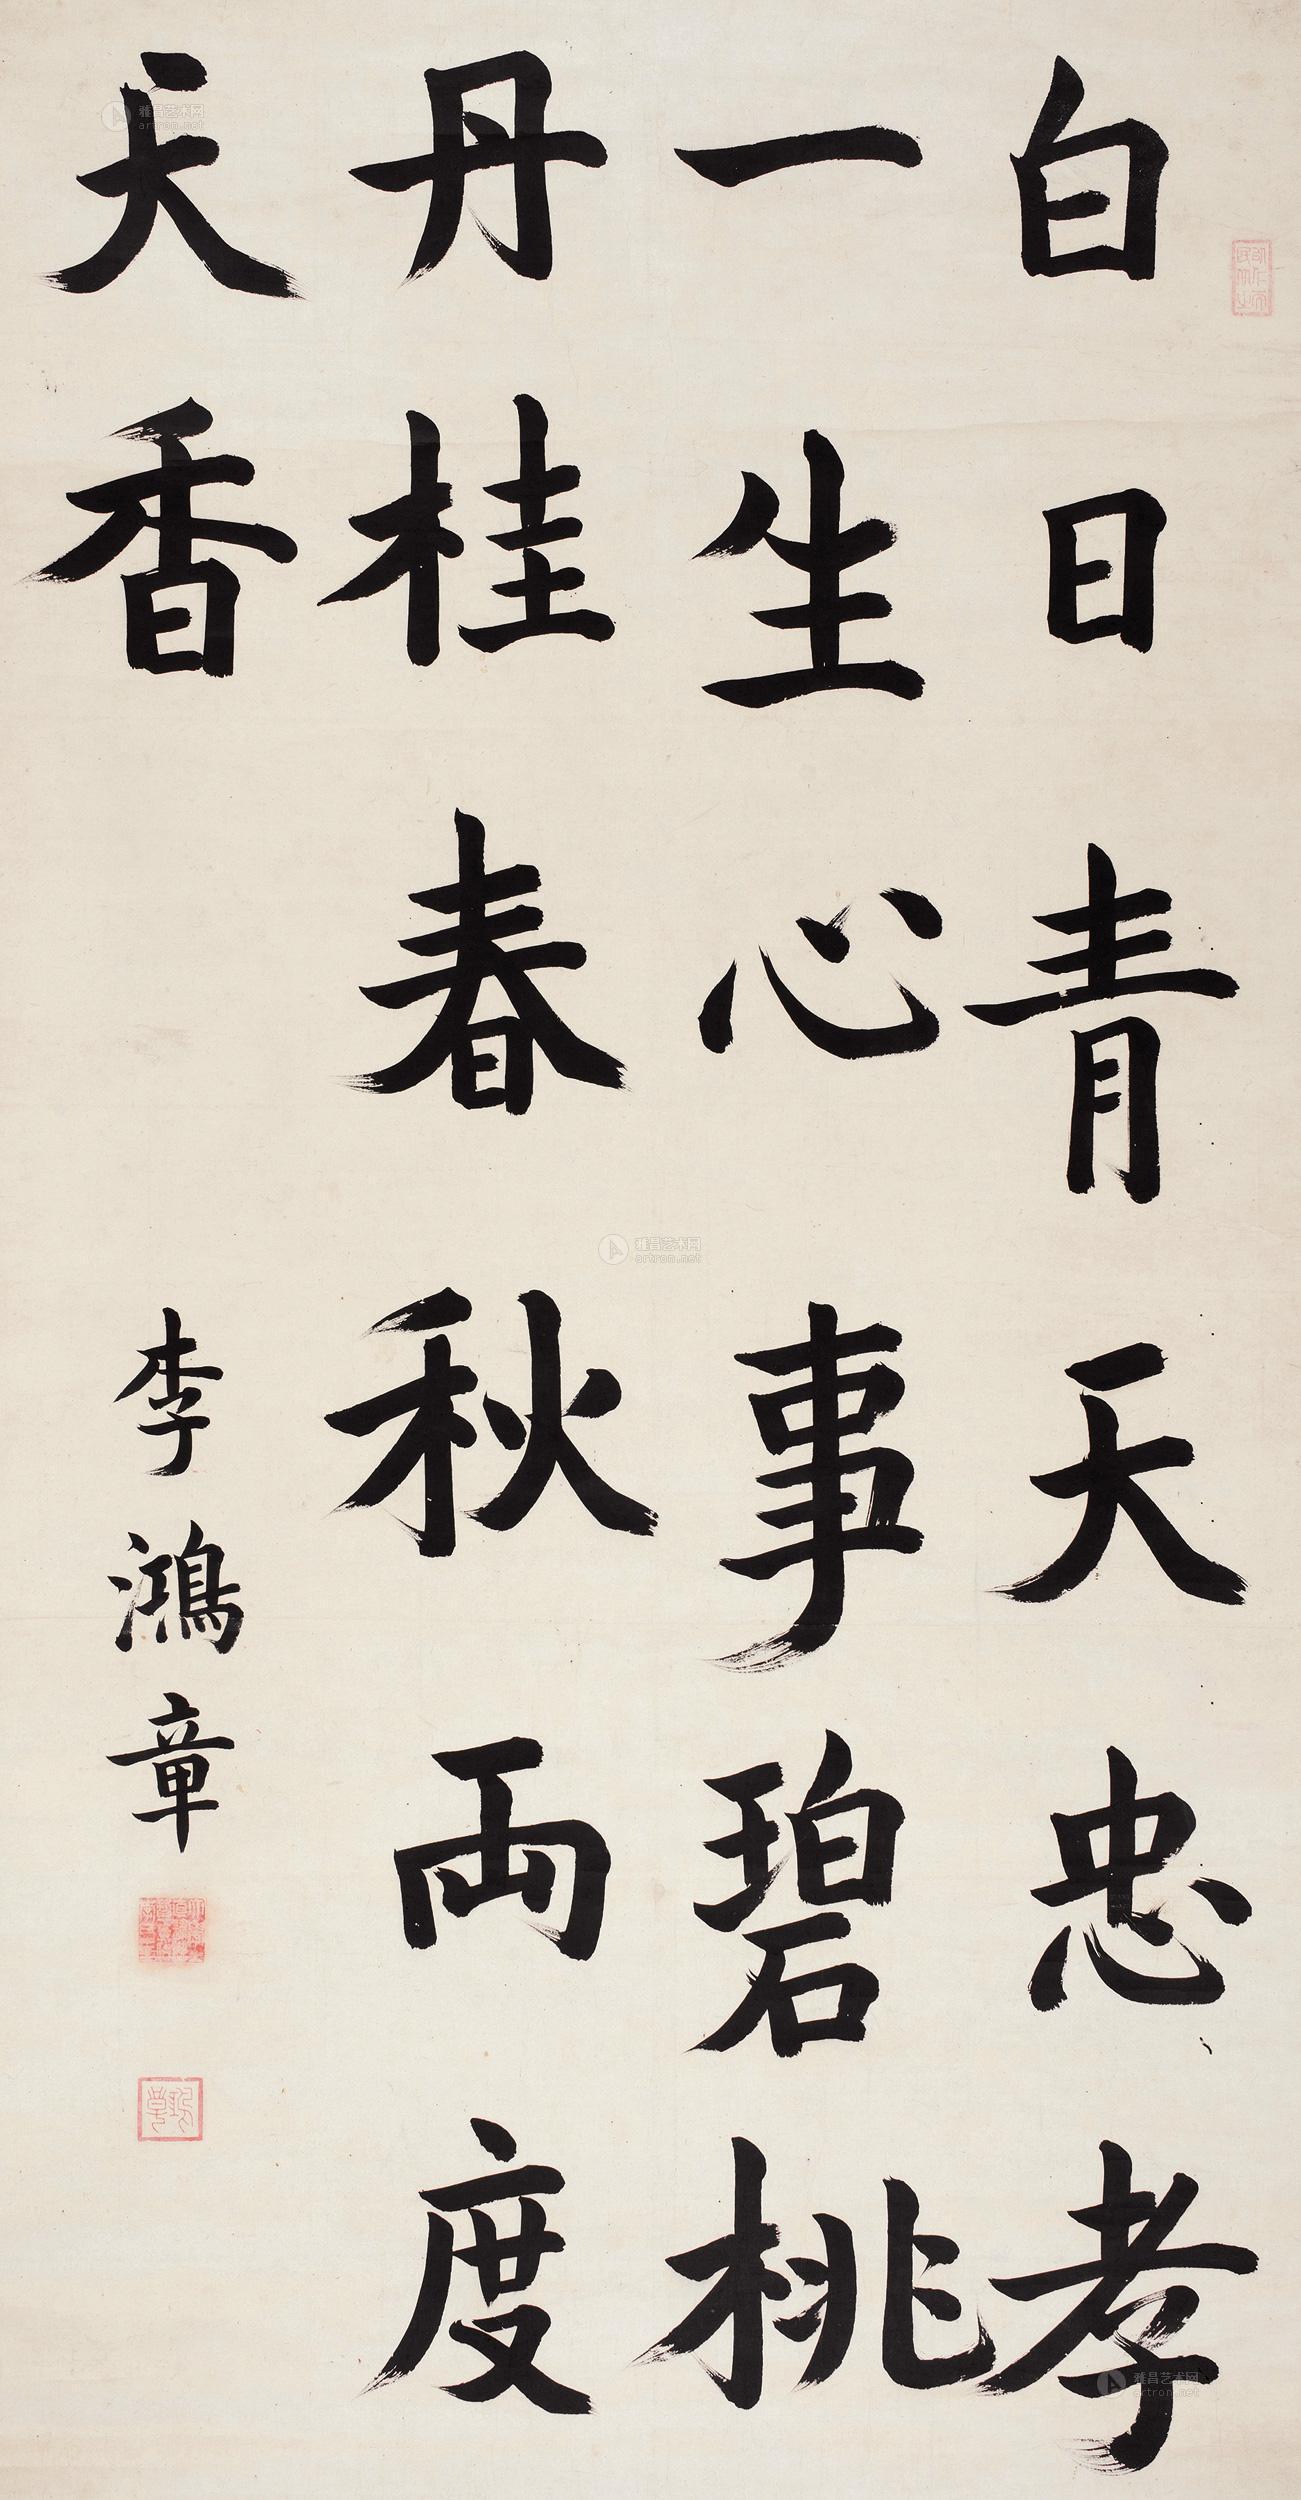 白日青天忠孝
一生心事碧桃
丹桂春秋两度
天香
李鴻章
雅昌艺术网
artron.net
雅昌艺术网
artron.net
雅昌艺术网
artron.net